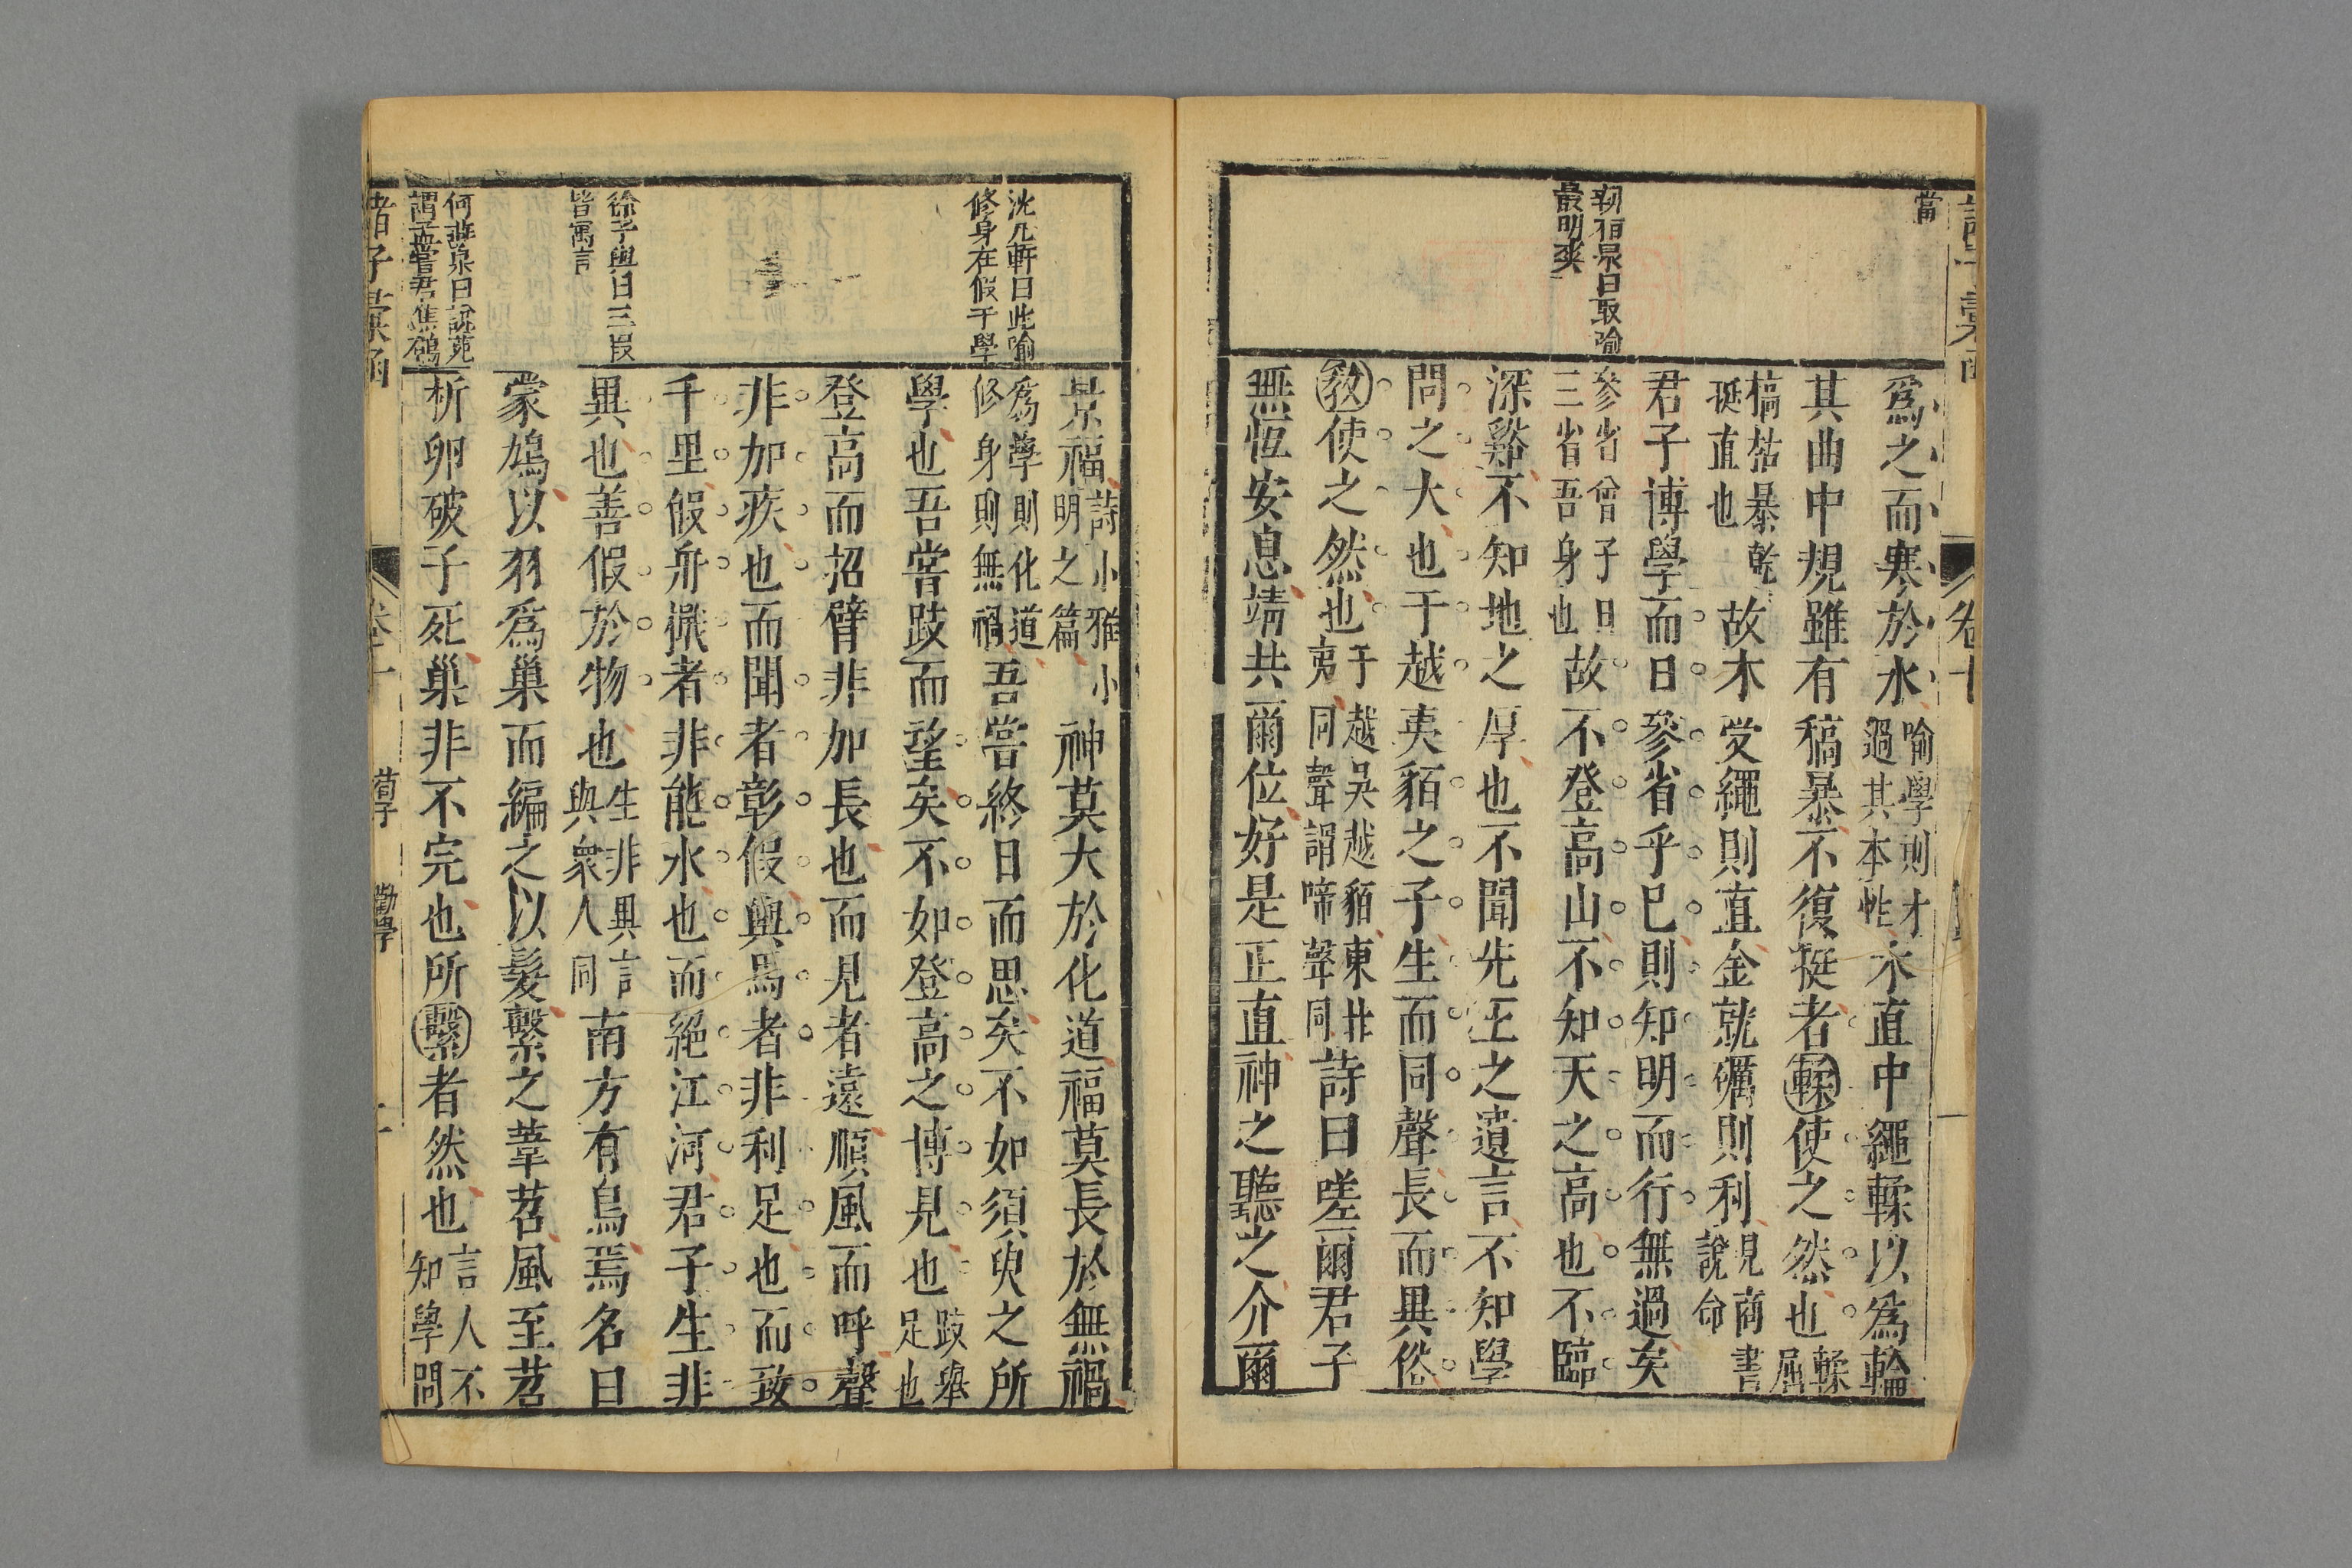 當
爲之而寒於水喻學則才過其本性木直中繩輮以爲輪
其曲中規雖有稿暴不復挺者輮使之然也輮屈
槁枯暴乾挺直也故木受繩則直金就礪則利見商書說命
君子博學而日參省乎已則知明而行無過矣
參省曾子曰三省吾身也故不登高山不知天之高也不臨
深谿不知地之厚也不聞先王之遺言不知學
問之大也于越夷貊之子生而同聲長而異俗
敎使之然也于越吳越貊東北夷同聲謂啼聲同詩曰嗟爾君子
無恆安息靖共爾位好是正直神之聽之介爾
泉曰取喻
最明爽
卷十
景福詩小雅小明之篇神莫大於化道福莫長於無禍
爲學則化道修身則無禍吾嘗終日而思矣不如須臾之所
學也吾嘗跂而望矣不如登高之博見也跂舉足也
登高而招臂非加長也而見者遠順風而呼聲
非加疾也而聞者彰假輿馬者非利足也而致
千里假舟檝者非能水也而絕江河君子生非
異也善假於物也生非異言與衆人同南方有鳥焉名曰
蒙鳩以羽爲巢而編之以髮繫之葦苕風至苕
折卵破子死巢非不完也所繫者然也言人不知學問
沈几軒曰此喻
修身在假于學
徐子與曰三段
皆寓言
何燕泉曰說苑
謂孟嘗君鷦鷯
諸子彙函
卷十
荀子
勸學